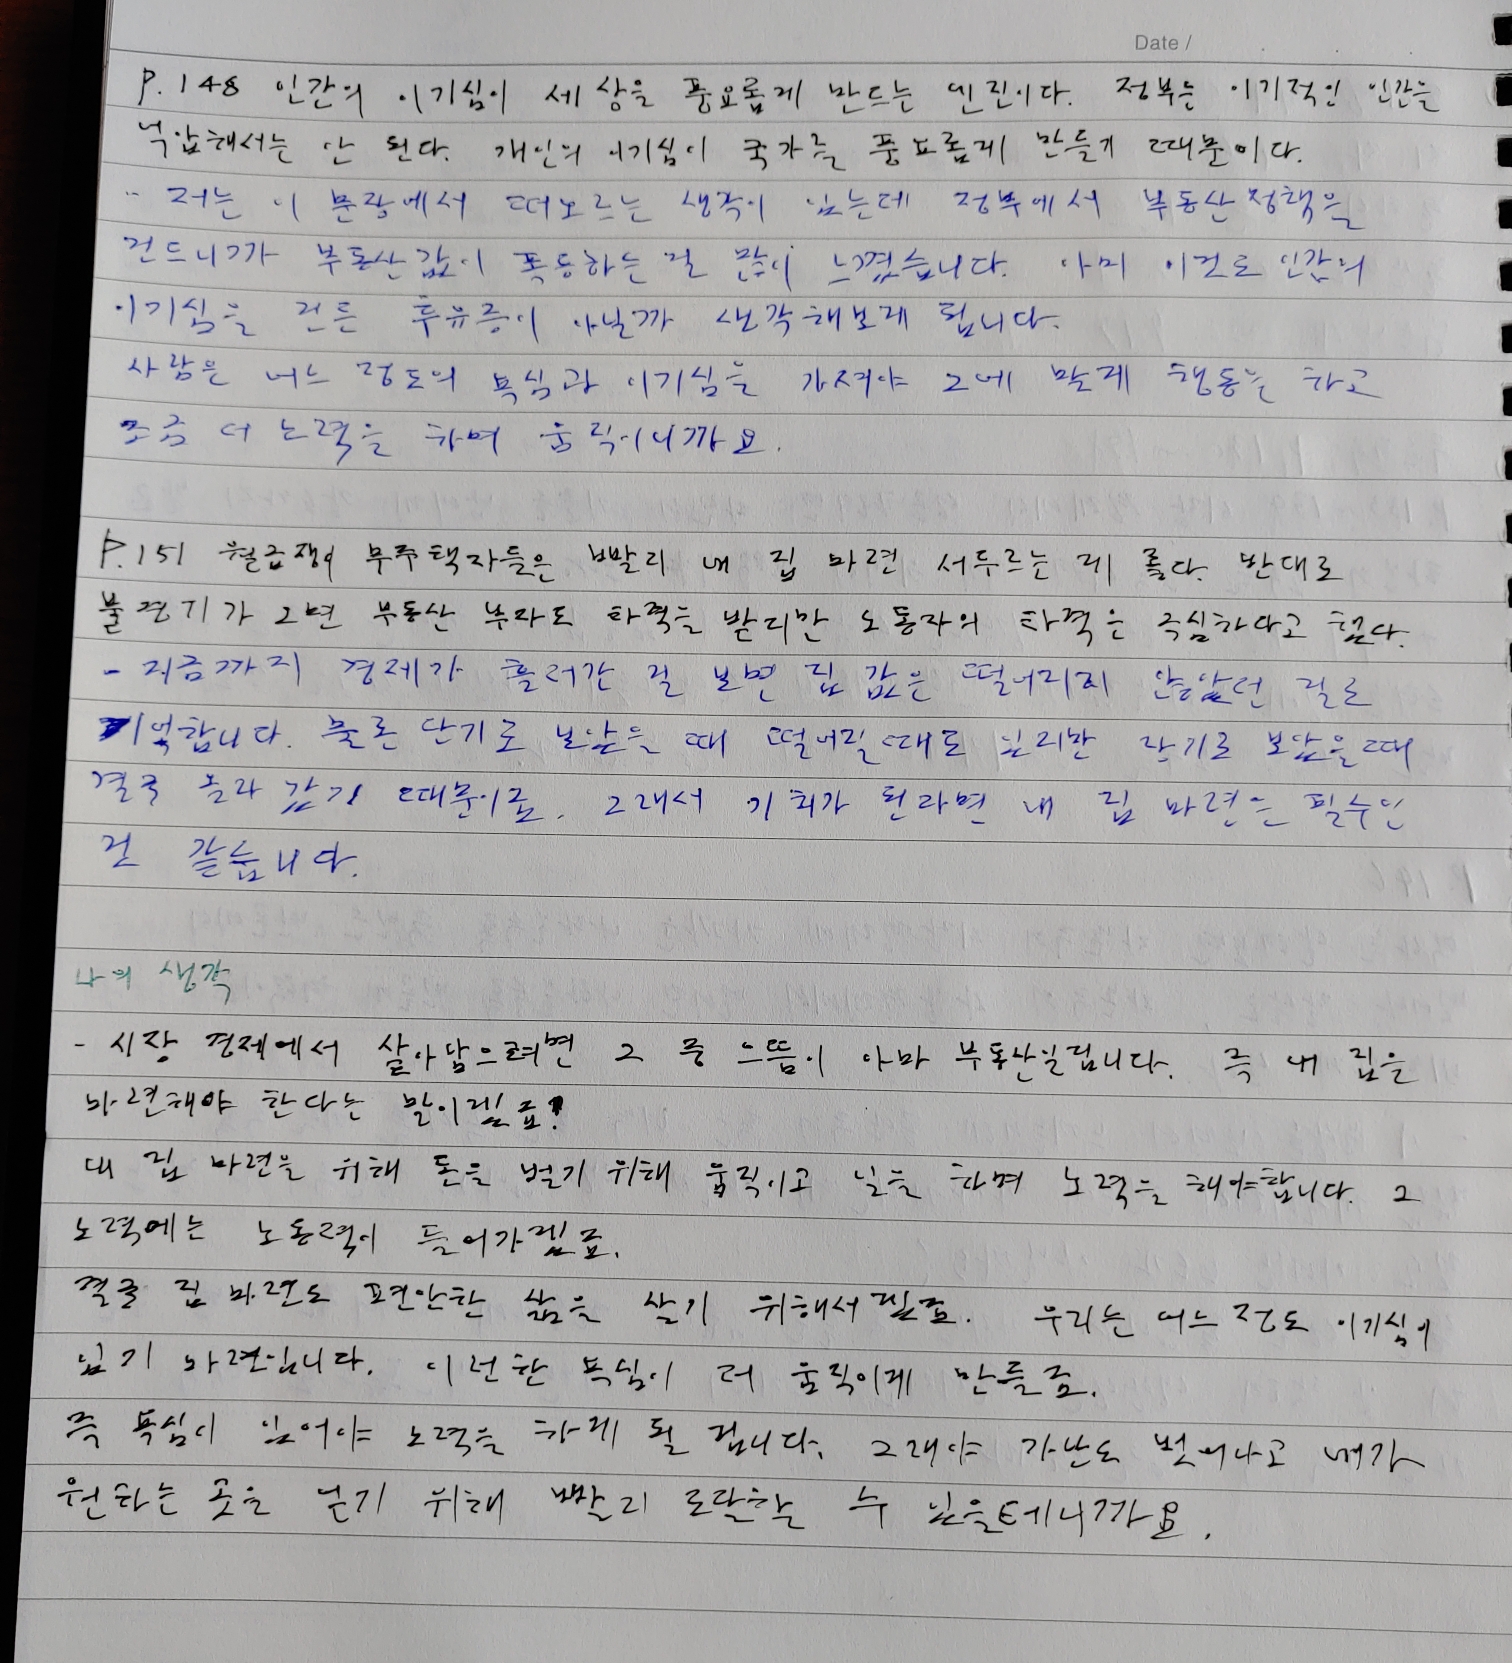 Date /
P.148 인간의 이기심이 세상을 풍요롭게 만드는 엔진이다. 정부는 이기적인 인간을
억압해서는 안 된다. 개인의 이기심이 국가를 풍요롭게 만들기 때문이다.
- 저는 이 문장에서 떠오르는 생각이 있는데 정부에서 부동산정책을
건드니까 부동산값이 폭등하는 걸 많이 느꼈습니다. 아마 이것도 인간의
이기심을 건든 후유증이 아닐까 생각해보게 됩니다.
사람은 어느 정도의 욕심과 이기심을 가져야 그에 맞게 행동을 하고
조금 더 노력을 하며 움직이니까요.
P.151 월급쟁이 무주택자들은 빨리 내 집 마련 서두르는 게 좋다. 반대로
불경기가 오면 부동산 부자도 타격을 받지만 노동자의 타격은 극심하다고 한다.
- 지금까지 경제가 흘러간 걸 보면 집 값은 떨어지지 않았던 걸로
기억합니다. 물론 단기로 보았을 때 떨어질때도 있지만 장기로 보았을때
결국 올라 갔기 때문이죠. 그래서 기회가 된다면 내 집 마련은 필수인
것 같습니다.
나의 생각
- 시장 경제에서 살아남으려면 그 중 으뜸이 아마 부동산일겁니다. 즉 내 집을
마련해야 한다는 말이겠죠?
내 집 마련을 위해 돈을 벌기 위해 움직이고 일을 하며 노력을 해야합니다. 그
노력에는 노동력이 들어가겠죠.
결국 집 마련도 편안한 삶을 살기 위해서겠죠. 우리는 어느 정도 이기심이
있기 마련입니다. 이러한 욕심이 더 움직이게 만들죠.
즉 욕심이 있어야 노력을 하게 될 겁니다. 그래야 가난도 벗어나고 내가
원하는 곳을 얻기 위해 빨리 도달할 수 있을테니까요.